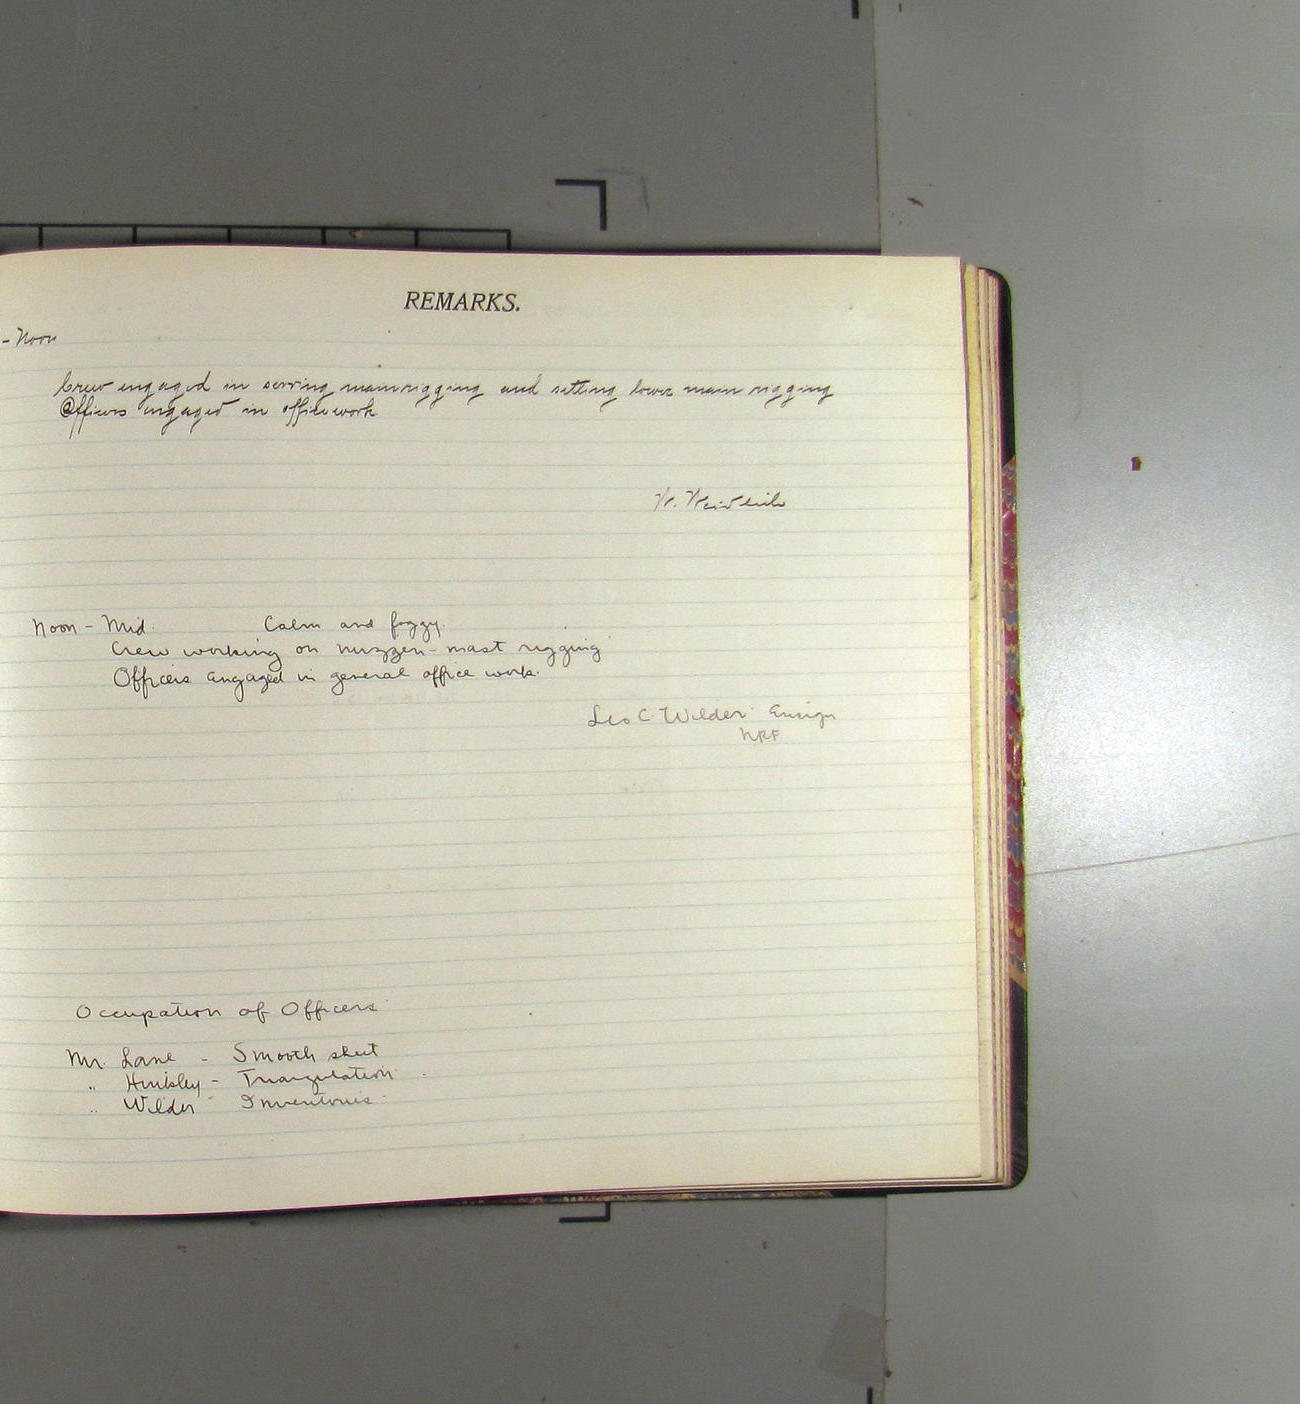 REMARKS.
- Noon
Crew engaged in serving main rigging and setting lower main rigging
Officers engaged in office work
Noon - Mid. Calm and foggy.
Crew working on mizzen-mast rigging
Officers engaged in general office work.
Leo C. Wilder Ensign
NRF
Occupation of Officers
Mr. Lane - Smooth sheet
" Hinkley - Triangulation
" Wilder Inventories